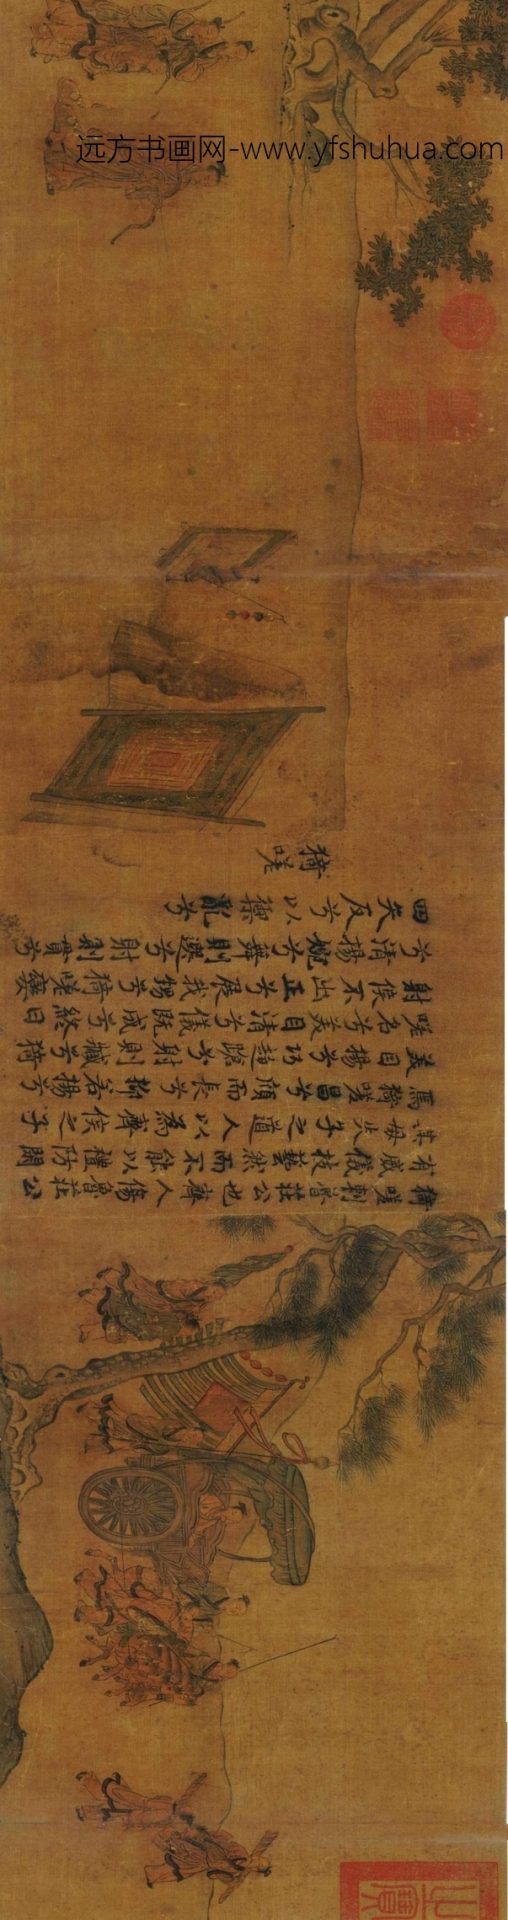 远方书画网-www.yfshuhua.com
猗嗟刺魯莊公也齊人傷魯莊公
有威儀技藝然而不能以禮防閑
其母失子之道人以為齊侯之子
焉猗嗟昌兮頎而長兮抑若揚兮
美目揚兮巧趨蹌兮射則臧兮猗
嗟名兮美目清兮儀既成兮終日
射侯不出正兮展我甥兮猗嗟孌
兮清揚婉兮舞則選兮射則貫兮
四矢反兮以禦亂兮
猗嗟
之寶